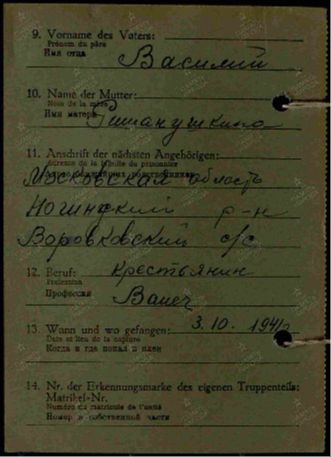 9. Vorname des Vaters:
Prénom du père
Имя отца
Василий
10. Name der Mutter:
Nom de la mère
Имя матери
11. Anschrift der nächsten Angehörigen:
Adresse de la famille du prisonnier
Московская область
Ногинский р-н
Воровковский с/с
12. Beruf: Крестьянин
Profession
Профессия
13. Wann und wo gefangen: 3.10.1941г
Date et lieu de la capture
Когда и где попал в плен
14. Nr. der Erkennungsmarke des eigenen Truppenteils:
Matrikel-Nr.
Numéro de matricule de l'unité
Номер в собственной части